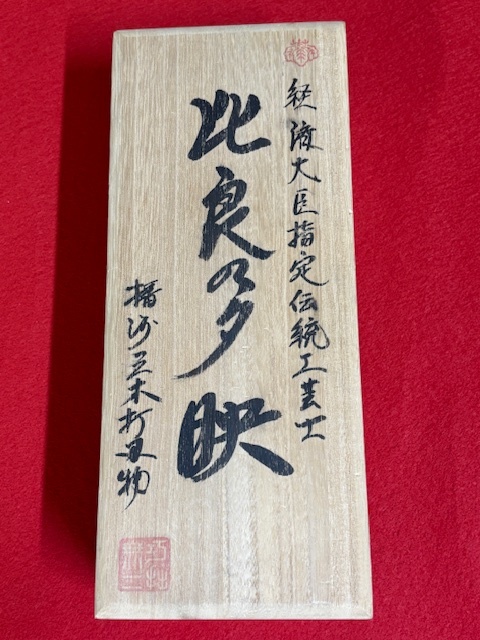 経済大臣指定伝統工芸士
比良乃夕映
播州三木打刃物